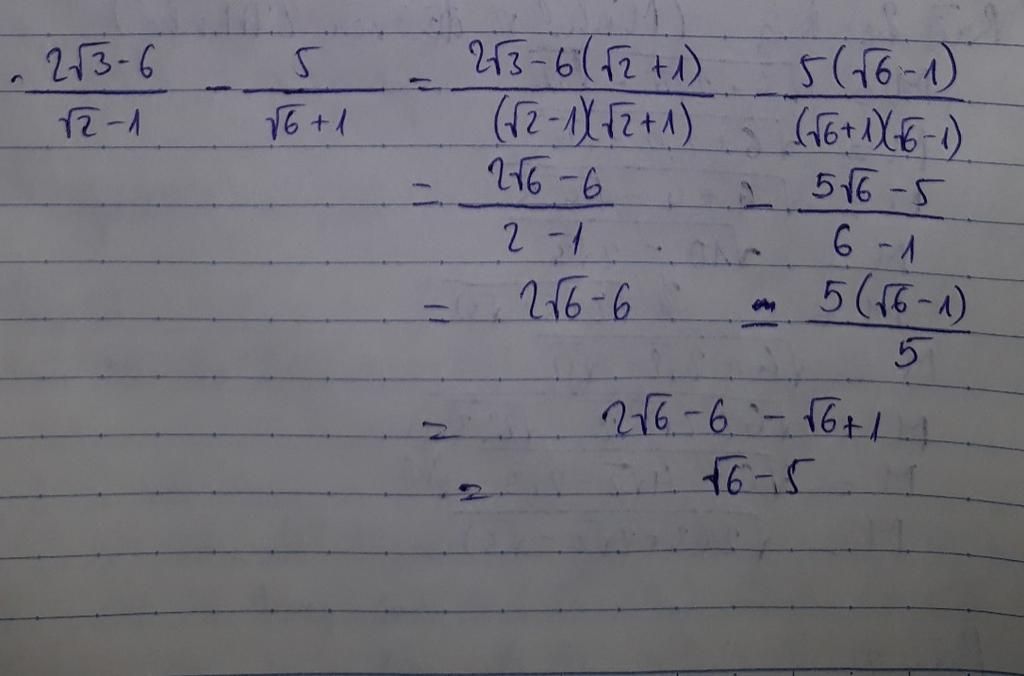 . \frac{2\sqrt{3}-6}{\sqrt{2}-1} - \frac{5}{\sqrt{6}+1} = \frac{2\sqrt{3}-6(\sqrt{2}+1)}{(\sqrt{2}-1)(\sqrt{2}+1)} - \frac{5(\sqrt{6}-1)}{(\sqrt{6}+1)(\sqrt{6}-1)}
= \frac{2\sqrt{6}-6}{2-1} - \frac{5\sqrt{6}-5}{6-1}
= 2\sqrt{6}-6 - \frac{5(\sqrt{6}-1)}{5}
= 2\sqrt{6}-6-\sqrt{6}+1
= \sqrt{6}-5